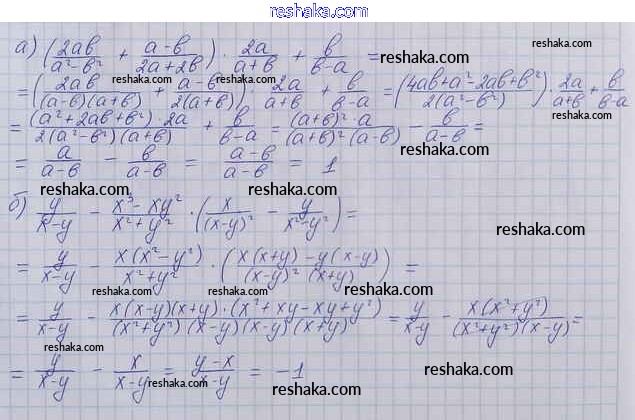 reshaka.com
а) (2ab/(a²-b²) + (a-b)/(2a+2b)) · 2a/(a+b) + b/(b-a) =
reshaka.com
reshaka.com
reshaka.com
= (2ab/((a-b)(a+b)) + (a-b)/(2(a+b))) · 2a/(a+b) + b/(b-a) = ((4ab+a²-2ab+b²)/(2(a²-b²))) · 2a/(a+b) + b/(b-a)
reshaka.com
= ((a²+2ab+b²)·2a)/(2(a²-b²)(a+b)) + b/(b-a) = ((a+b)²·a)/((a+b)²(a-b)) - b/(a-b) =
reshaka.com
= a/(a-b) - b/(a-b) = (a-b)/(a-b) = 1
reshaka.com
reshaka.com
б) y/(x-y) - (x³-xy²)/(x²+y²) · (x/(x-y)² - y/(x²-y²)) =
reshaka.com
= y/(x-y) - x(x²-y²)/(x²+y²) · ((x(x+y)-y(x-y))/((x-y)²(x+y))) =
reshaka.com
reshaka.com
= y/(x-y) - (x(x-y)(x+y)·(x²+xy-xy+y²))/((x²+y²)(x-y)(x-y)(x+y)) = y/(x-y) - x(x²+y²)/((x²+y²)(x-y)) =
reshaka.com
= y/(x-y) - x/(x-y) = (y-x)/(x-y) = -1
reshaka.com
reshaka.com